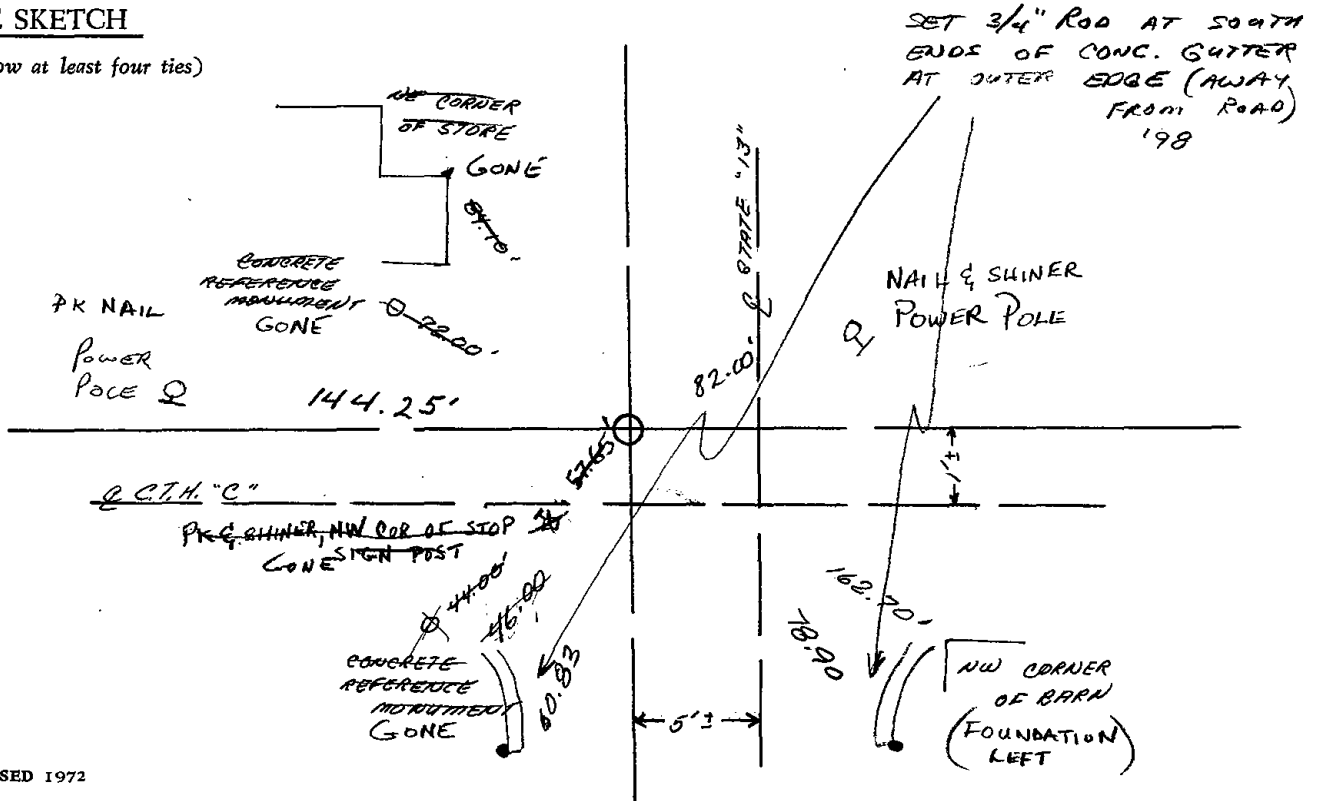 E SKETCH
ow at least four ties)
SET 3/4" ROD AT SOUTH
ENDS OF CONC. GUTTER
AT OUTER EDGE (AWAY
FROM ROAD)
'98
NE CORNER
OF STORE
GONE
84.10'
CONCRETE
REFERENCE
MONUMENT
GONE
72.00'
PK NAIL
POWER
POLE
144.25'
℄ STATE "13"
82.00'
NAIL & SHINER
POWER POLE
57.65'
1'±
℄ C.T.H. "C"
PK & SHINER, NW COR OF STOP
SIGN POST
GONE
44.00'
46.00
CONCRETE
REFERENCE
MONUMENT
GONE
60.83
5'±
162.70'
78.90
NW CORNER
OF BARN
(FOUNDATION
LEFT)
SED 1972